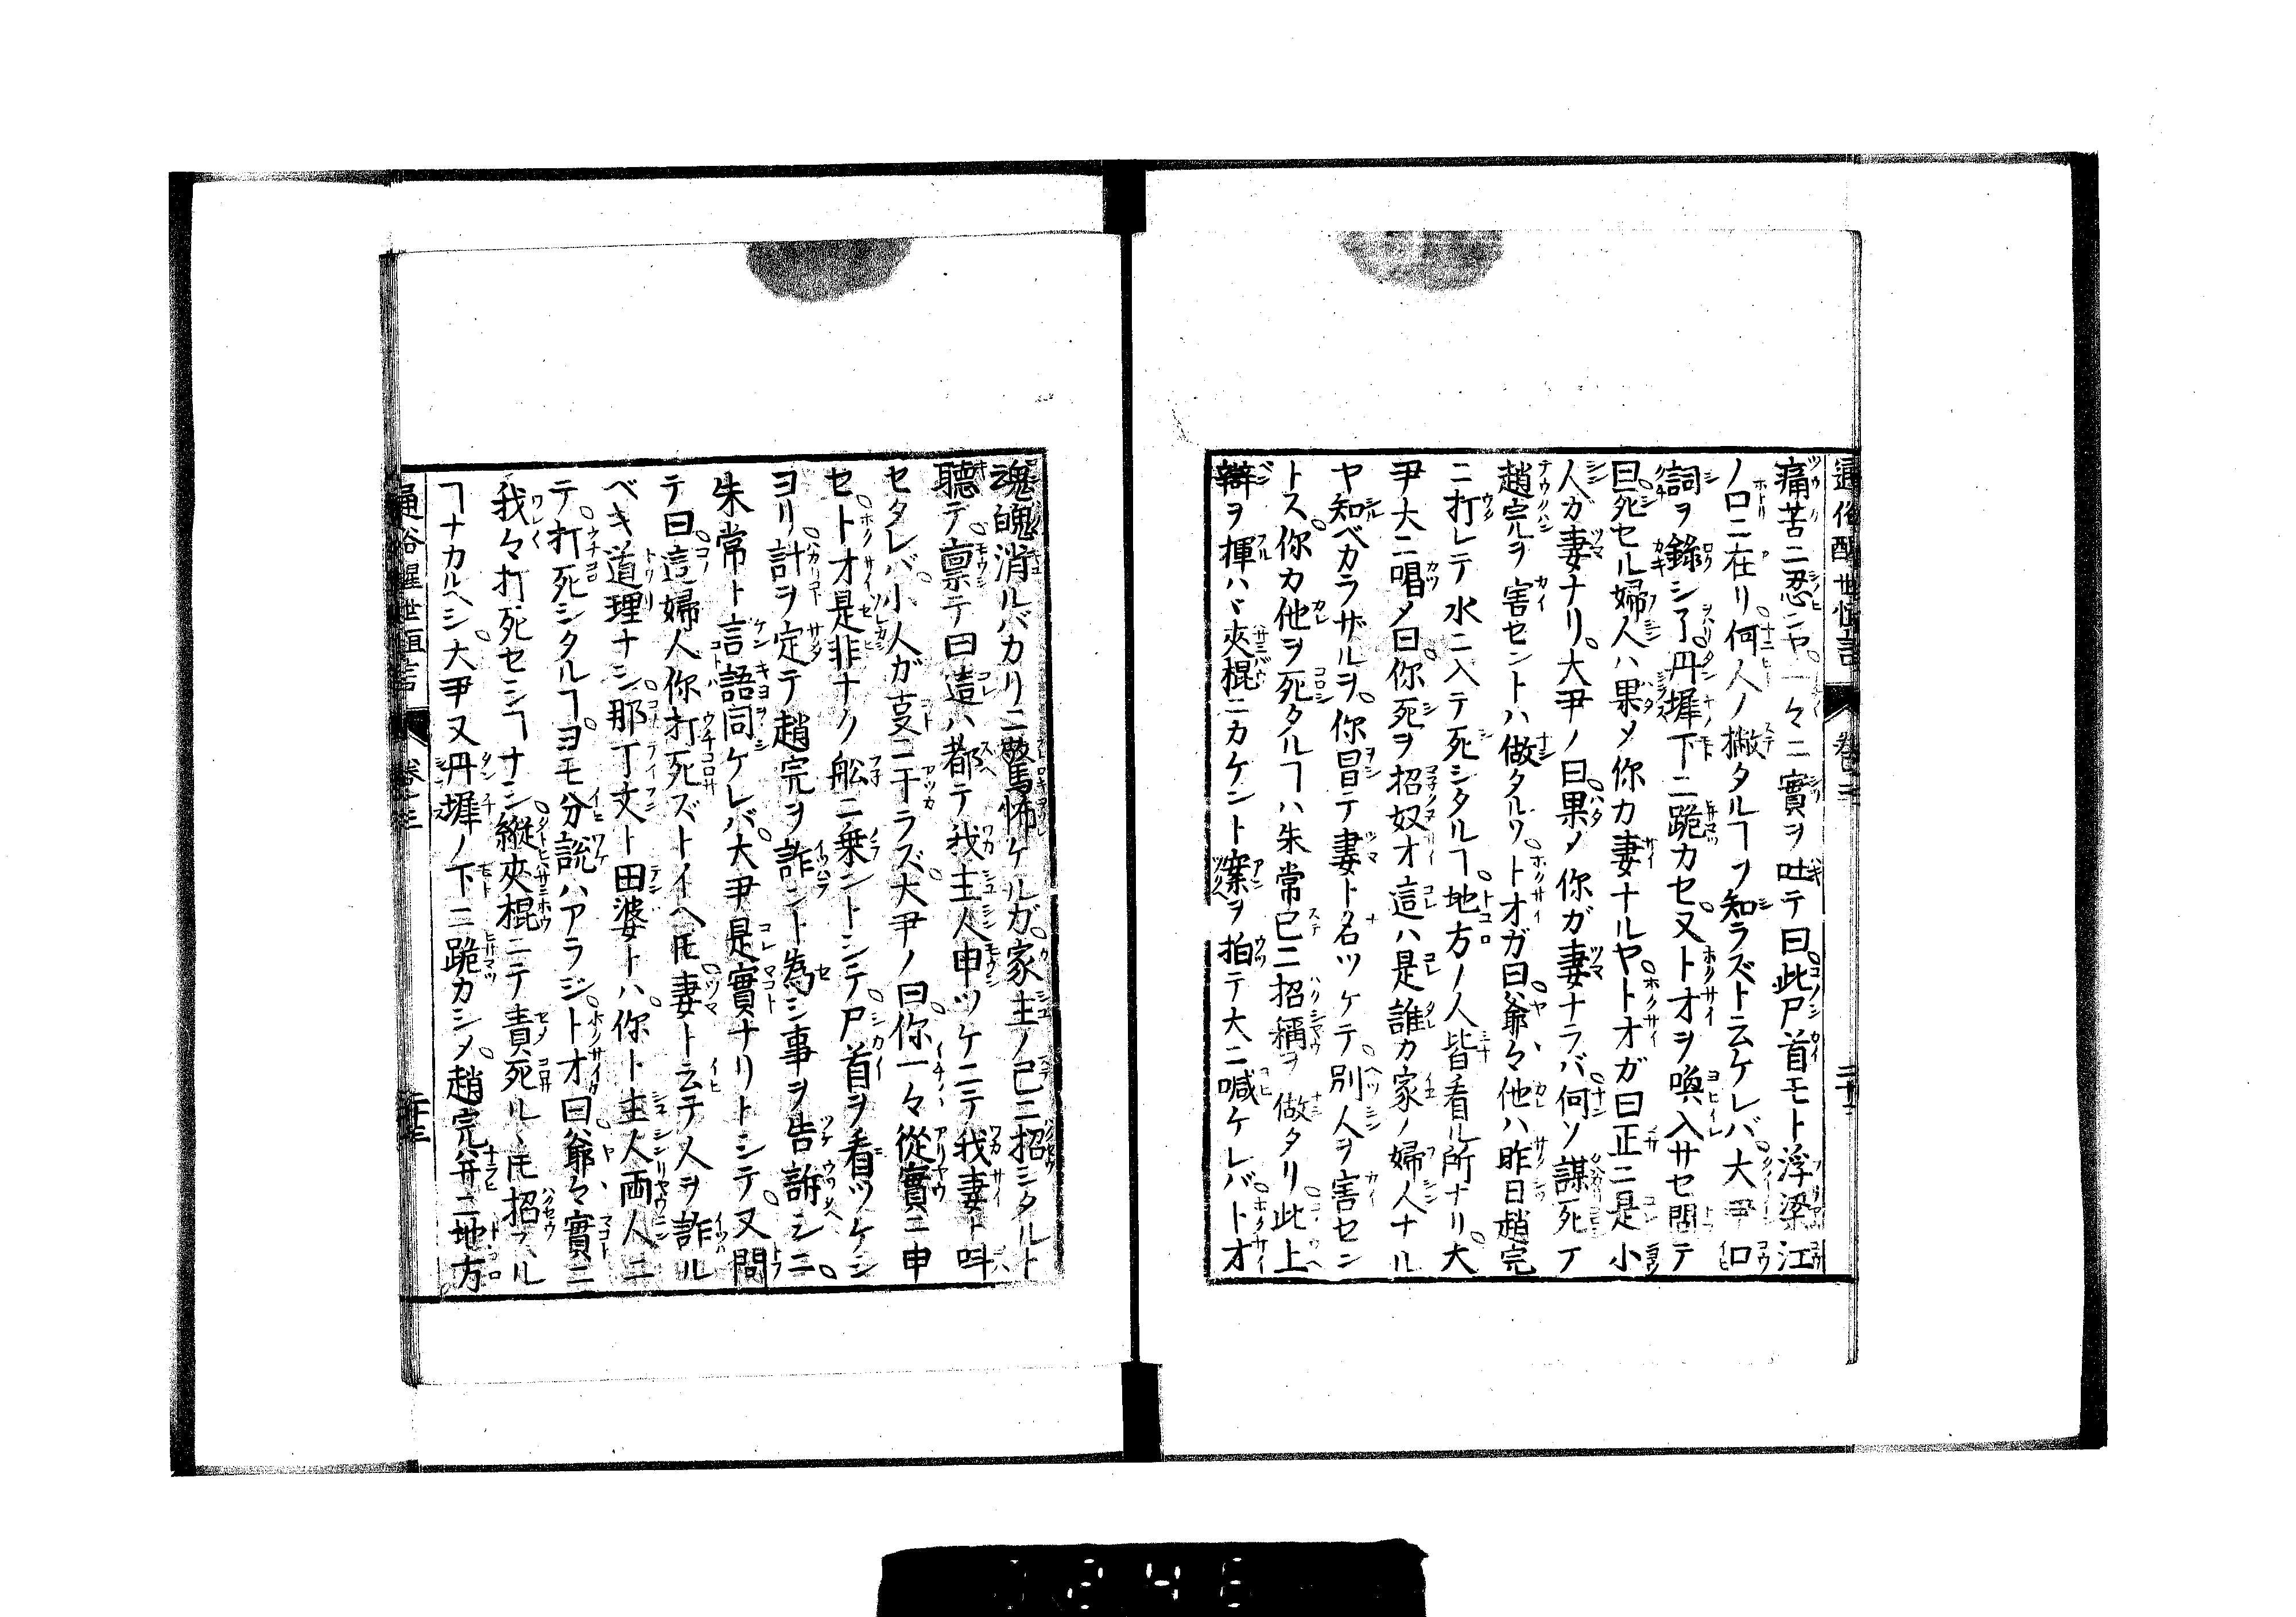 通俗醒世恒言 卷之三
痛苦ニ忍ンヤ。一々ニ實ヲ吐テ曰。此尸首モト浮梁江
ノ口ニ在リ。何人ノ撇タルヿヲ知ラズト云ケレバ。大尹口
詞ヲ錄シ了。丹墀下ニ跪カセ。又卜才ヲ喚入サセ問テ
曰。死セル婦人ハ果メ你カ妻ナルヤ。卜才ガ曰正ニ是小
人ガ妻ナリ。大尹ノ曰。果メ你ガ妻ナラバ。何ソ謀死了
趙完ヲ害セントハ做タルソ。卜才ガ曰。爺々他ハ昨日趙完
ニ打レテ水ニ入テ死シタルヿ。地方ノ人皆看ル所ナリ。大
尹大ニ喝メ曰。你死ヲ招奴才這ハ是誰カ家ノ婦人ナル
ヤ知ベカラザルヲ。你冒テ妻ト名ツケテ。別人ヲ害セン
トス。你カ他ヲ死タルヿハ朱常已ニ招稱ヲ做タリ。此上
辯ヲ揮ハヾ夾棍ニカケント案ヲ拍テ大ニ喊ケレバ。卜才
魂魄消ルバカリニ驚怖ケルガ。家主ノ已ニ招シタルト
聽テ。禀テ曰這ハ都テ我主人申ツケニテ我妻ト呌
セタレバ。小人ガ叓ニ干ラズ。大尹ノ曰。你一々從實ニ申
セ。卜才是非ナク舩ニ乗ントシテ。尸首ヲ看ツケシ
ヨリ。計ヲ定テ趙完ヲ詐ント為シ事ヲ告訴シニ。
朱常ト言語同ケレバ。大尹是實ナリトシテ。又問
テ曰。這婦人你打死ズトイヘ𪜈。妻ト云テ人ヲ詐ル
ベキ道理ナシ。那丁文ト田婆トハ。你ト主人両人ニ
テ。打死シタルヿ。ヨモ分説ハアラジ。卜才曰。爺々實ニ
我々打死セシヿナシ。縱夾棍ニテ責死ルヽ𪜈招スル
ヿナカルヘシ。大尹又丹墀ノ下ニ跪カシメ。趙完幷ニ地方
通俗醒世恒言 卷之三 二十三